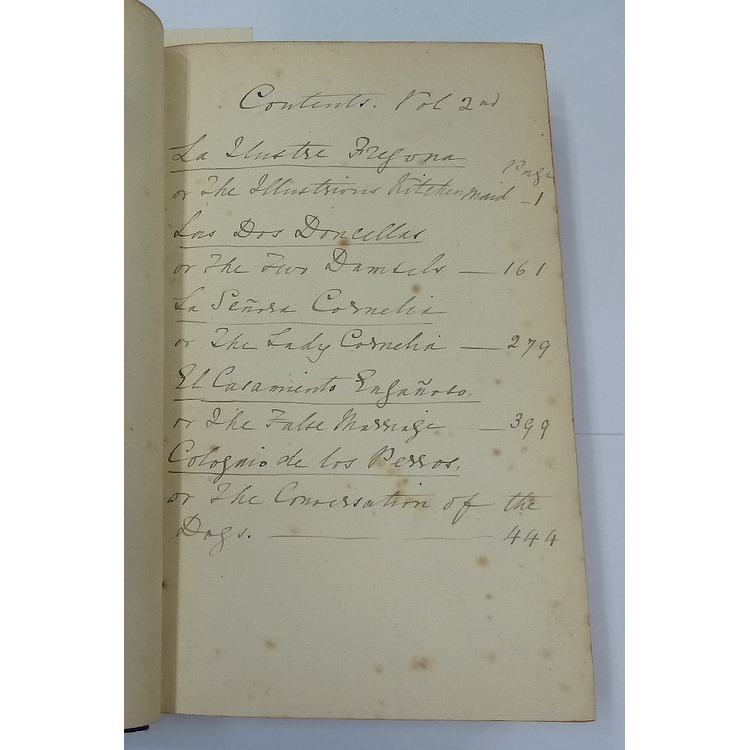 Contents. Vol 2nd
La Ilustre Fregona
Page
or The Illustrious Kitchen maid – 1
Las Dos Doncellas
or The Two Damsels — 161
La Señora Cornelia
or The Lady Cornelia — 279
El Casamiento Engañoso.
or The False Marriage — 399
Cologuio de los Perros.
or The Conversation of the
Dogs. — 444